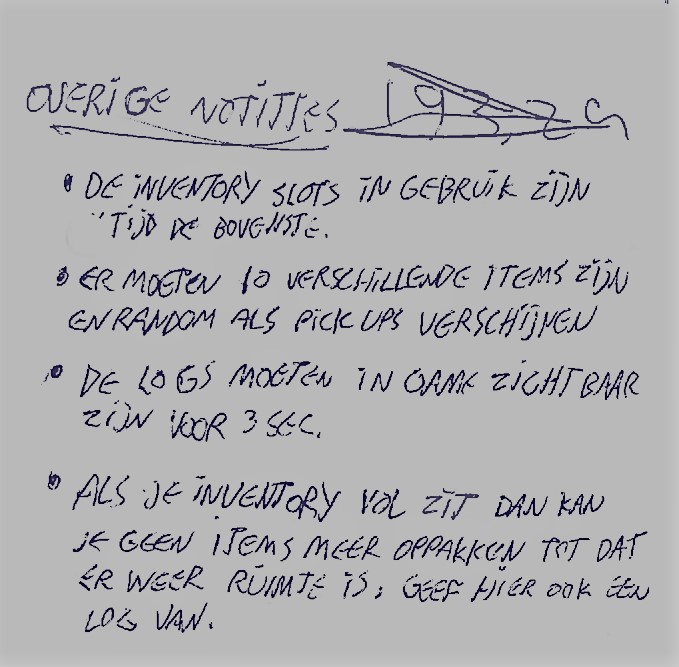 OVERIGE NOTITIES
• DE INVENTORY SLOTS IN GEBRUIK ZIJN
TIJD DE BOVENSTE.
• ER MOETEN 10 VERSCHILLENDE ITEMS ZIJN
EN RANDOM ALS PICK UPS VERSCHIJNEN
• DE LOGS MOETEN IN GAME ZICHTBAAR
ZIJN VOOR 3 SEC.
• ALS JE INVENTORY VOL ZIT DAN KAN
JE GEEN ITEMS MEER OPPAKKEN TOT DAT
ER WEER RUIMTE IS, GEEF HIER OOK EEN
LOG VAN.